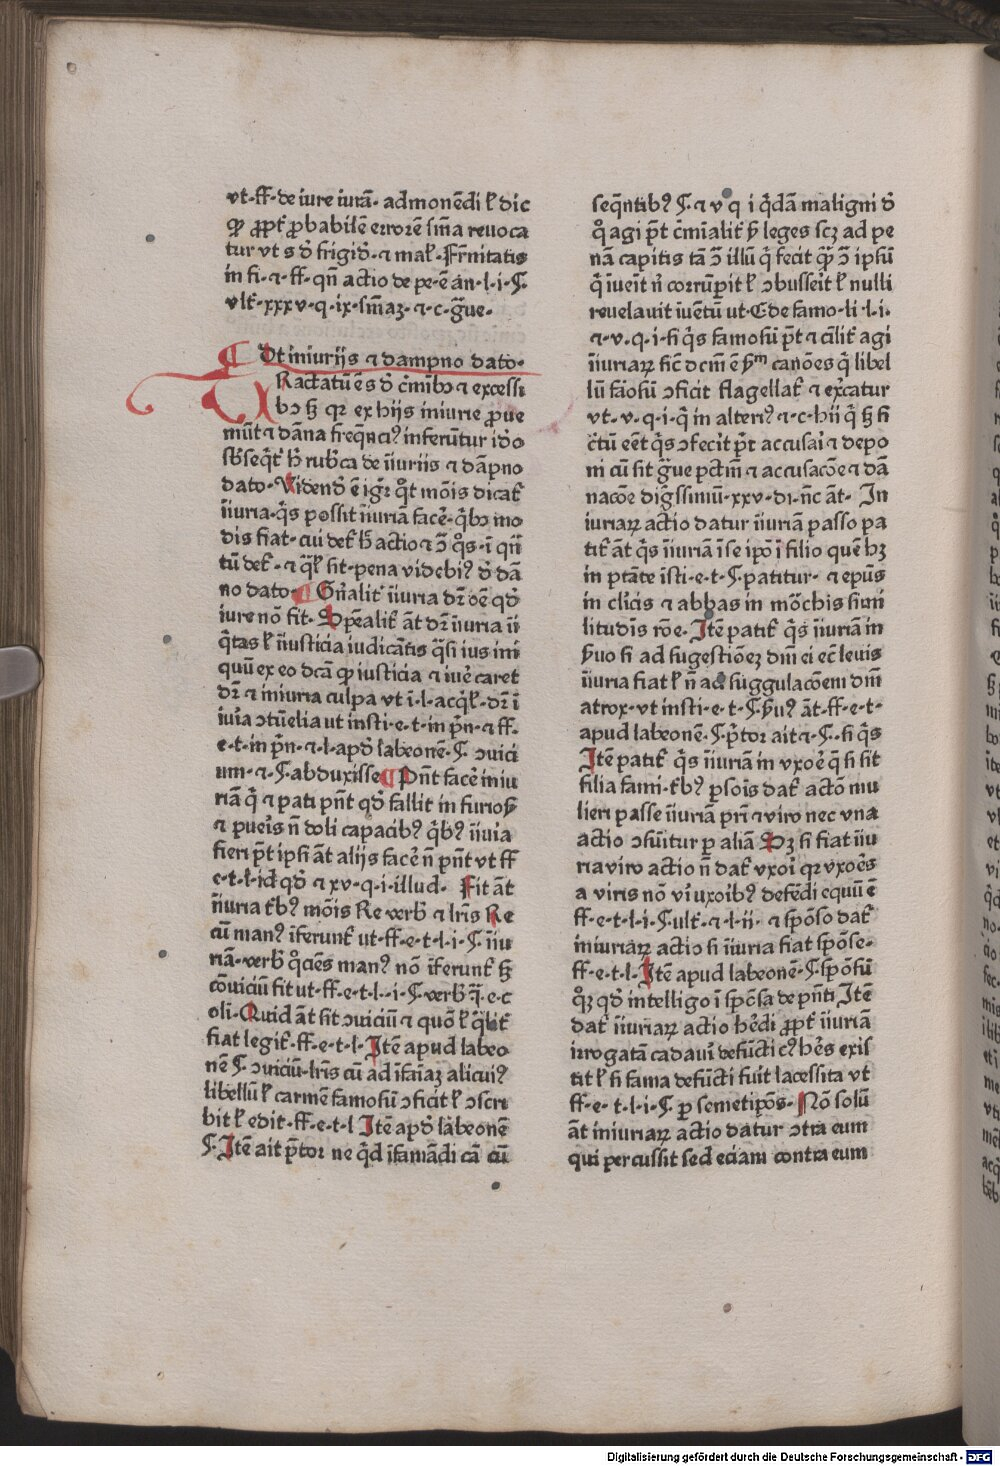 vt·ff·de iure iurā· admonēdi ł dic
ꝙ ꝓpt̄ ꝓbabilē errorē sm̄a reuoca
tur vt s d̄ frigid̄·⁊ mal̄·Fr̄nitatis
in fi·⁊ ff·qn̄ actio de pe·ē an·l·i·§·
vlt̄·xxxv·q·ix·sm̄aꝫ·⁊·c·ḡue·
¶ De iniurijs ⁊ dampno dato·
TRactatū ē s d̄ c̄mībꝰ ⁊ excessi
bꝰ sꝫ qꝛ ex hijs iniurie ꝓue
niūt ⁊ dāna freq̄nciꝰ inferūtur id̄o
sb̄seq̄t̄ h̄ rubͨca de īiuriis ⁊ dāpno
dato·Vidend̄ ē igr̄ qͦt mōis dicat̄
īiuria·qͥs possit īiuriā facē·qͥbꝰ mo
dis fiat·cui det̄ h̄ actio ⁊ ꝯ qͦs·ī qn̄
tū det̄·⁊ q̄l̄ sit·pena videbiꝰ d̄ dā
no dato·¶ Gn̄alit̄ īiuria dr̄ oē qd̄
iure nō fit·Spēalit̄ āt dr̄ īiuria ii
qͥtas ł īiusticia iudicātis qͣsi ius ini
quū ex eo dcā ꝙ iusticia ⁊ iuē caret
dr̄ ⁊ iniuria culpa vt ī·l·acq̄l̄·dr̄ ī
iuīa ꝯtūelia ut insti·e·t·in pͥn·⁊ ff·
e·t·in pͥn·⁊·l·apd̄ labeonē·§· ꝯuici
um·⁊·§·abduxisse ¶ Pn̄t facē iniu
riā qͥ ⁊ pati pn̄t qd̄ fallit in furiosꝭ
⁊ pueīs n̄ doli capacibꝰ qͥbꝰ īiuīa
fieri pt̄ ipsi āt alijs facē n̄ pn̄t vt ff
e·t·l·id̄ qd̄ ⁊ xv·q·i·illud· Fit āt
īiuria t̄bꝰ mōis Re verb̄ ⁊ lr̄is Re
cū manꝰ īferunt̄ ut·ff·e·t·l·i·§·īiu
riā·verb̄ qͦciēs manꝰ nō īferunt̄ sꝫ
cōuiciū fit ut·ff·e·t·l·i·§·verb̄ q̄·e·c
oli·Quid āt sit ꝯuiciū ⁊ quō ł qͣlit̄
fiat legit̄·ff·e·t·l·Itē apud labeo
nē §·ꝯuiciū·lr̄is cū ad īfaīaꝫ alicuiꝰ
libellū ł carmē famosū ꝯficit ł ꝯscri
bit ł edit·ff·e·t·l Itē apd̄ labeonē
§·Itē ait pͥtor ne qͥd īfamādi cā cū
seqn̄tibꝰ §·⁊ v q i qͥdā maligni d̄
qͦ agi pt̄ cͥmīalit̄ ꝑ leges scꝫ ad pe
nā capitis tā ꝯ illū qͥ fecit qͣꝫ ꝯ ipsū
qͥ iuēit n̄ corrūpit ł ꝯbusseīt ł nulli
reuelauit iuētū ut·C de famo·li·l·i·
⁊·v·q·i·si qͥs famosū pt̄ ⁊ cīlit̄ agi
īiuriaꝝ sic̄ dcm̄ ē ꝑᵐ canōes qͥ libel
lū fāosū ꝯficit flagellat̄ ⁊ exͨcatur
vt·v·q·i·qͥ in alteriꝰ ⁊·c·hii qͥ sꝫ si
cͨtū eēt qͥs ꝯfecit pt̄r accusaī ⁊ depo
ni cū sit ḡue pctm̄ ⁊ accusacōe ⁊ dā
nacōe dig̅ssimū·xxv·di·n̄c āt· In
iuriaꝝ actio datur īiuriā passo pa
tit̄ āt qͥs īiuriā ī se ipō ī filio quē hꝫ
in ptāte isti·e·t·§·patitur·⁊ epūs
in clīcis ⁊ abbas in mōchis simi
litudīs rōe·Itē patit̄ qͥs īiuriā in
ẜuo si ad sugestiōeꝫ dn̄i ei ec̄ leuis
īiuria fiat ł n̄ ad suggulacōem dn̄i
atrox·vt insti·e·t·§·ẜuꝰ āt·ff·e·t·
apud labeonē·§·pͥtor ait ⁊·§·si qͥs
Itē patit̄ qͥs īiuriā in vxoē qͣ si sit
filia fami·t̄bꝰ psoīs dat̄ actō mu
lieri passe īiuriā pri ⁊ viro nec vna
actio ꝯsuitur p aliā Sꝫ si fiat īiu
ria viro actio n̄ dat̄ vxoī qꝛ vxoēs
a viris nō vī uxoibꝰ defēdi equū ē
ff·e·t·l·i·§·ult̄·⁊·l·ii· ⁊ spōso dat̄
iniuriaꝝ actio si īiuria fiat spōse·
ff·e·t·l·Itē apud labeonē·§·spōsū
qͦꝫ qd̄ intelligo ī spōsa de pn̄ti Itē
dat̄ īiuriaꝝ actio hēdi ꝓpt̄ īiuriā
irrogatā cadaueī defūcti cꝰ hēs exis
tit ł si fama defūcti fuit lacessita vt
ff·e· t·l·i·§· p semetipōs·Nō solū
āt iniuriaꝝ actio datur ꝯtra eum
qui percussit sed eciam contra eum
Digitalisierung gefördert durch die Deutsche Forschungsgemeinschaft - DFG